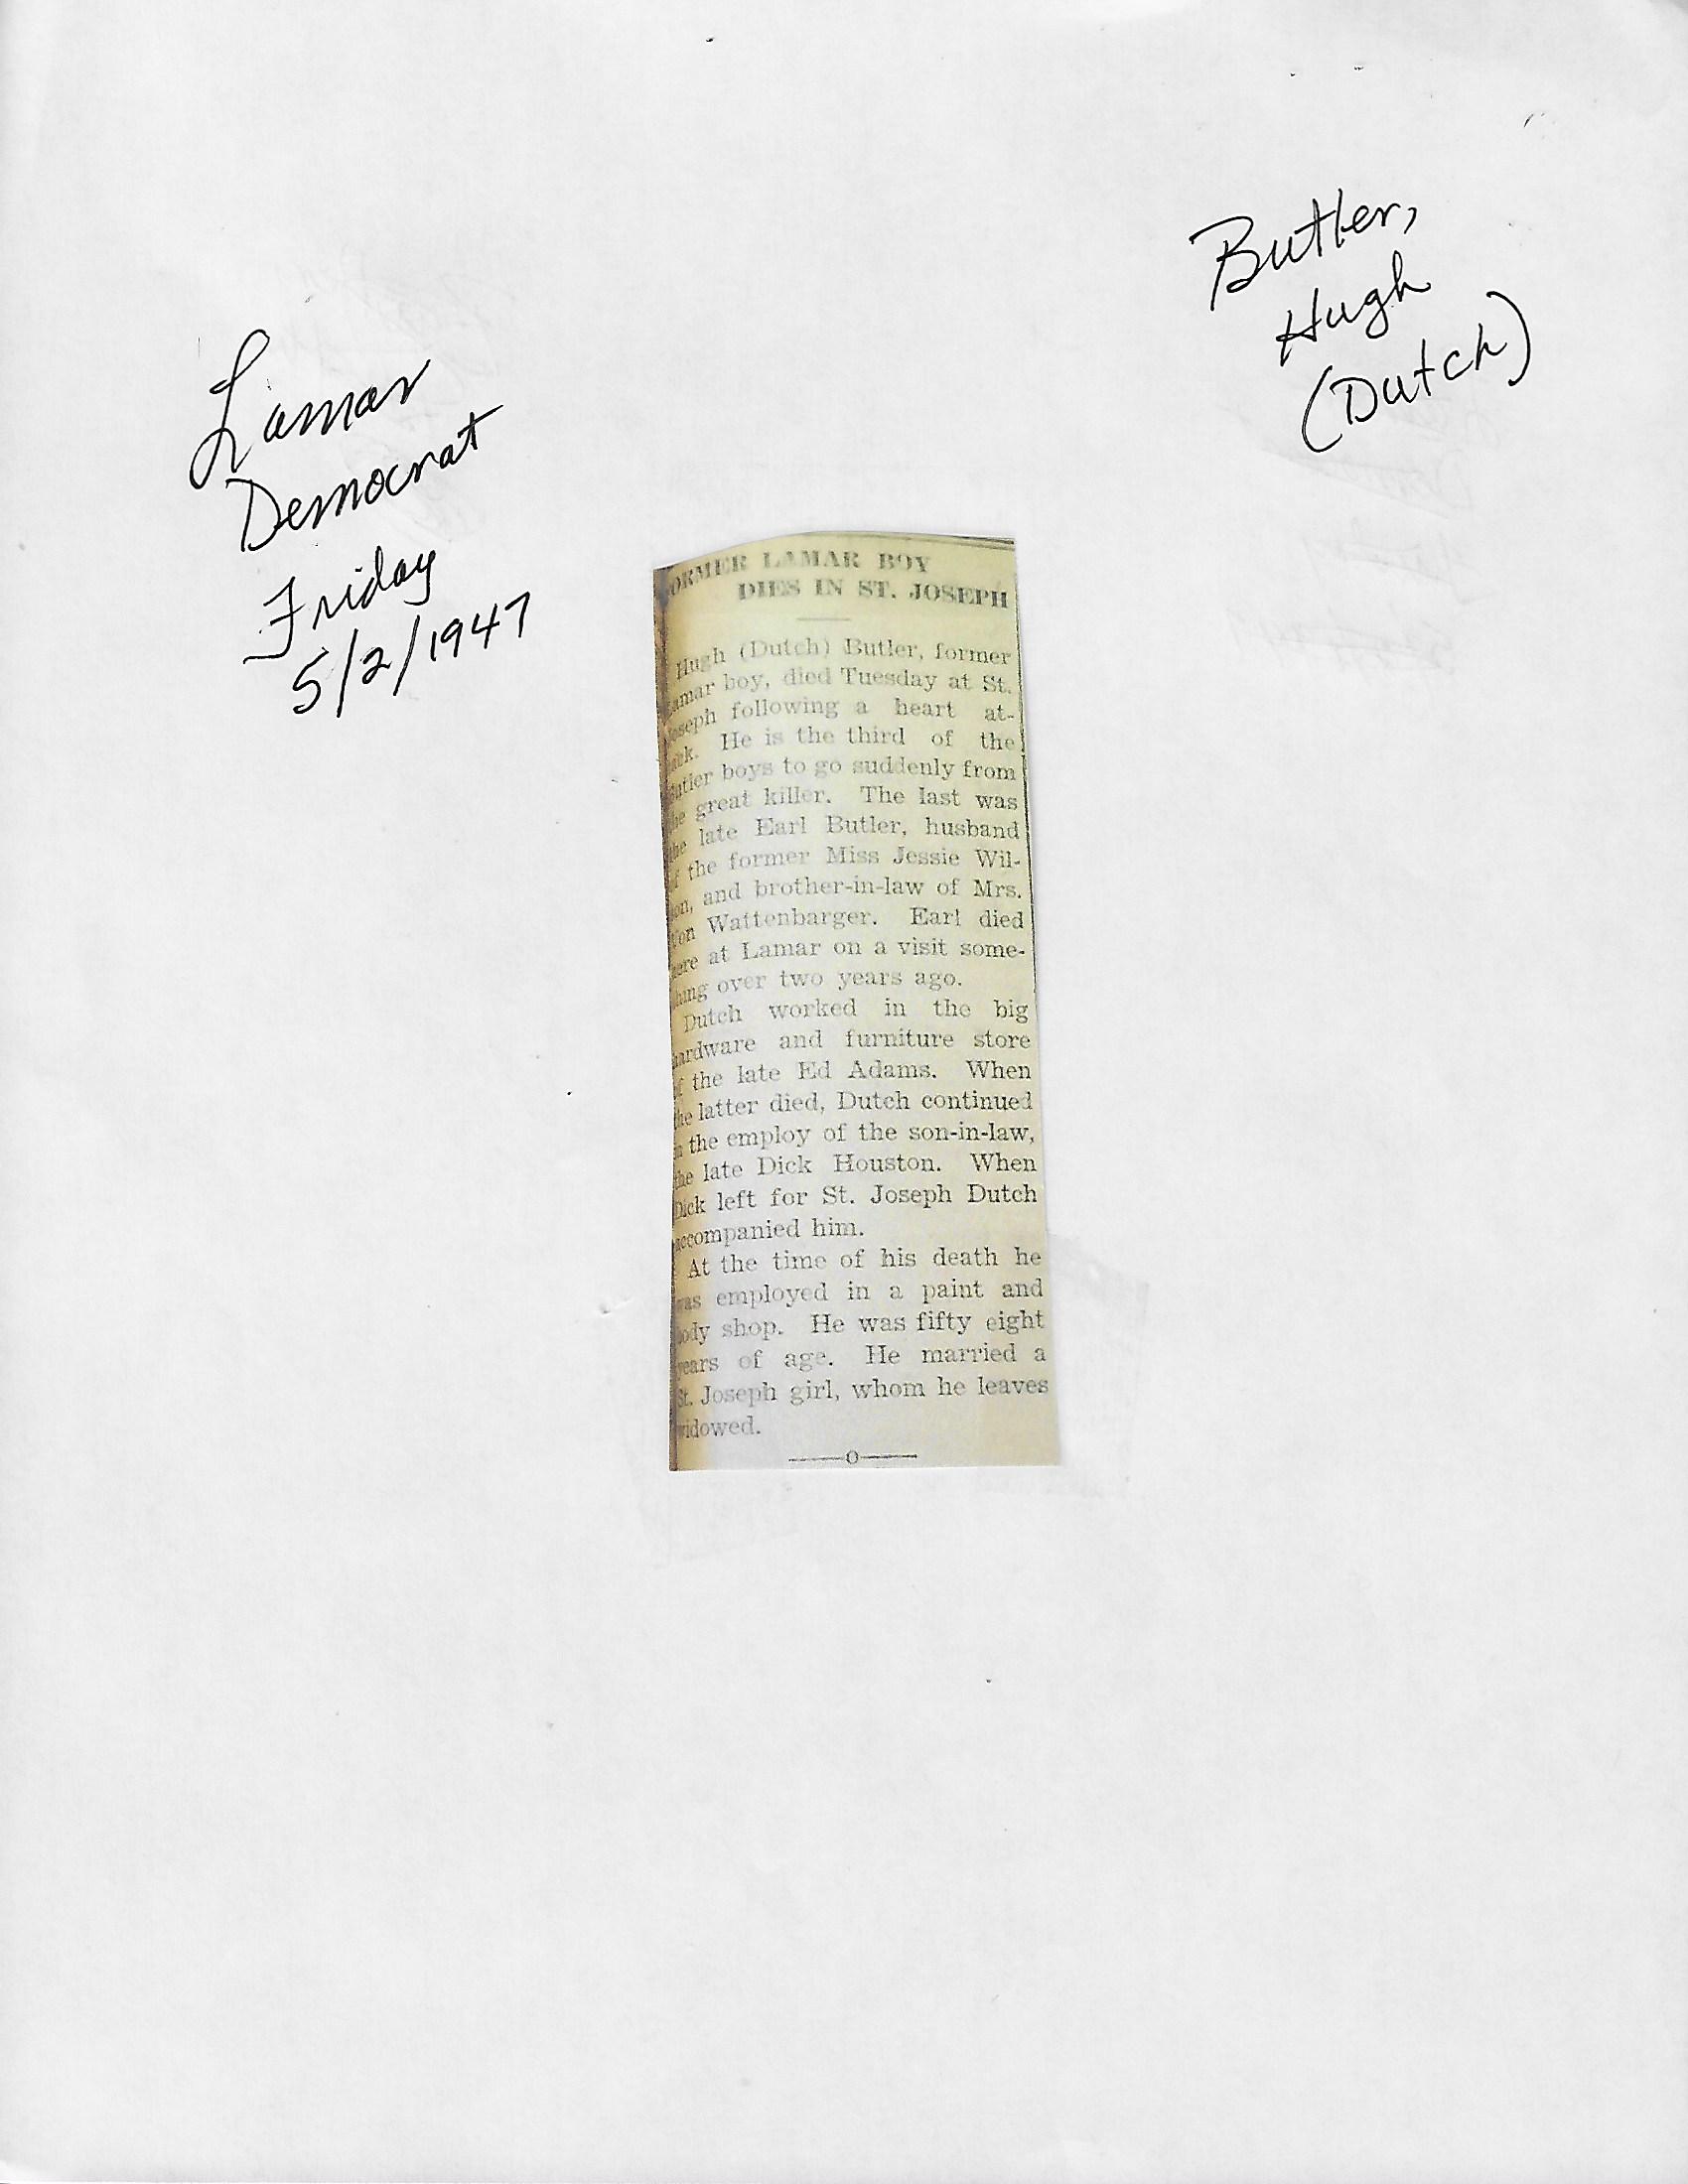 Butler,
Hugh
(Dutch)
Lamar
Democrat
Friday
5/2/1947
ORMER LAMAR BOY
DIES IN ST. JOSEPH
Hugh (Dutch) Butler, former
amar boy, died Tuesday at St.
oseph following a heart at-
ack. He is the third of the
utler boys to go suddenly from
he great killer. The last was
the late Earl Butler, husband
f the former Miss Jessie Wil-
on, and brother-in-law of Mrs.
on Wattenbarger. Earl died
ere at Lamar on a visit some-
hing over two years ago.
Dutch worked in the big
ardware and furniture store
f the late Ed Adams. When
he latter died, Dutch continued
n the employ of the son-in-law,
the late Dick Houston. When
Dick left for St. Joseph Dutch
accompanied him.
At the time of his death he
was employed in a paint and
ody shop. He was fifty eight
years of age. He married a
St. Joseph girl, whom he leaves
widowed.